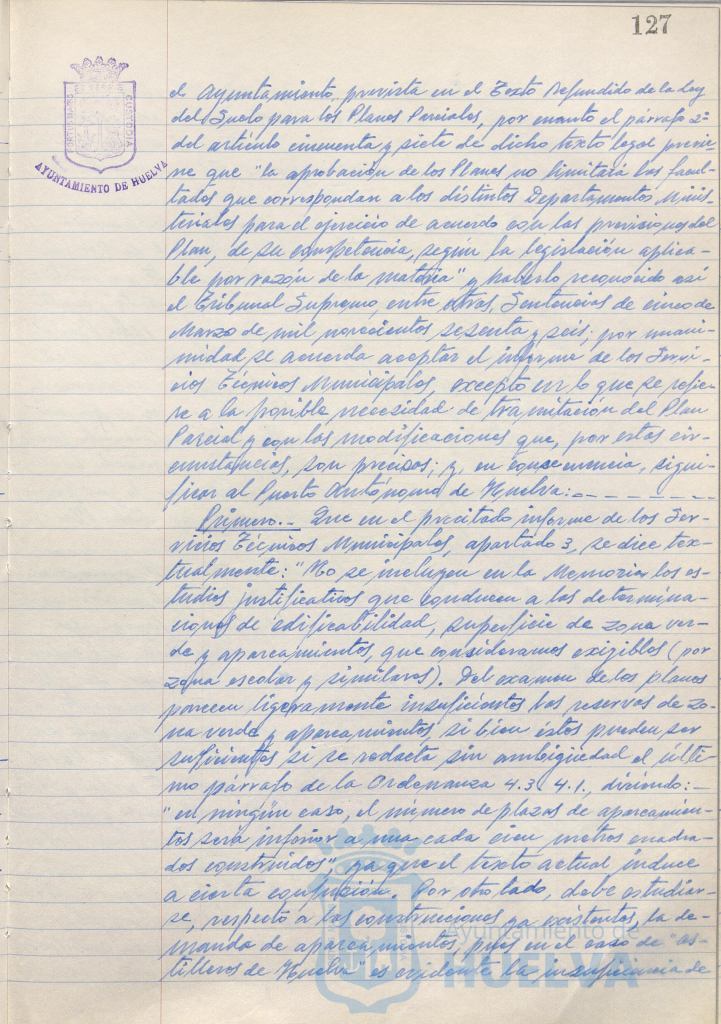 127
PORTUS MARIS CUSTODIA
AYUNTAMIENTO DE HUELVA
el Ayuntamiento, prevista en el Texto Refundido de la Ley
del Suelo para los Planes Parciales, por cuanto el párrafo 2º
del artículo cincuenta y siete de dicho texto legal previe-
ne que "la aprobación de los Planes no limitará las facul-
tades que correspondan a los distintos Departamentos Minis-
teriales para el ejercicio de acuerdo con las previsiones del
Plan, de su competencia, según la legislación aplica-
ble por razón de la materia" y haberlo reconocido así
el Tribunal Supremo, entre otras, Sentencias de cinco de
Marzo de mil novecientos sesenta y seis; por unani-
midad se acuerda aceptar el informe de los Servi-
cios Técnicos Municipales, excepto en lo que se refie-
re a la posible necesidad de tramitación del Plan
Parcial y con las modificaciones que, por estas cir-
cunstancias, son precisas; y, en consecuencia, signi-
ficar al Puerto Autónomo de Huelva:-------
Primero.- Que en el precitado informe de los Ser-
vicios Técnicos Municipales, apartado 3, se dice tex-
tualmente: "No se incluyen en la Memoria los es-
tudios justificativos que conducen a las determina-
ciones de edificabilidad, superficie de zona ver-
de y aparcamientos, que consideramos exigibles (por
zona escolar y similares). Del examen de los planos
parecen ligeramente insuficientes las reservas de zo-
na verde y aparcamientos, si bien éstos pueden ser
suficientes si se redacta sin ambigüedad el últi-
mo párrafo de la Ordenanza 4.3.4.1., diciendo:-
"en ningún caso, el número de plazas de aparcamien-
tos será inferior a una cada cien metros cuadra-
dos construidos", ya que el texto actual induce
a cierta confusión. Por otro lado, debe estudiar-
se, respecto a las construcciones ya existentes, la de-
manda de aparcamientos, pues en el caso de "As-
tilleros de Huelva" es evidente la insuficiencia de
Ayuntamiento de
HUELVA